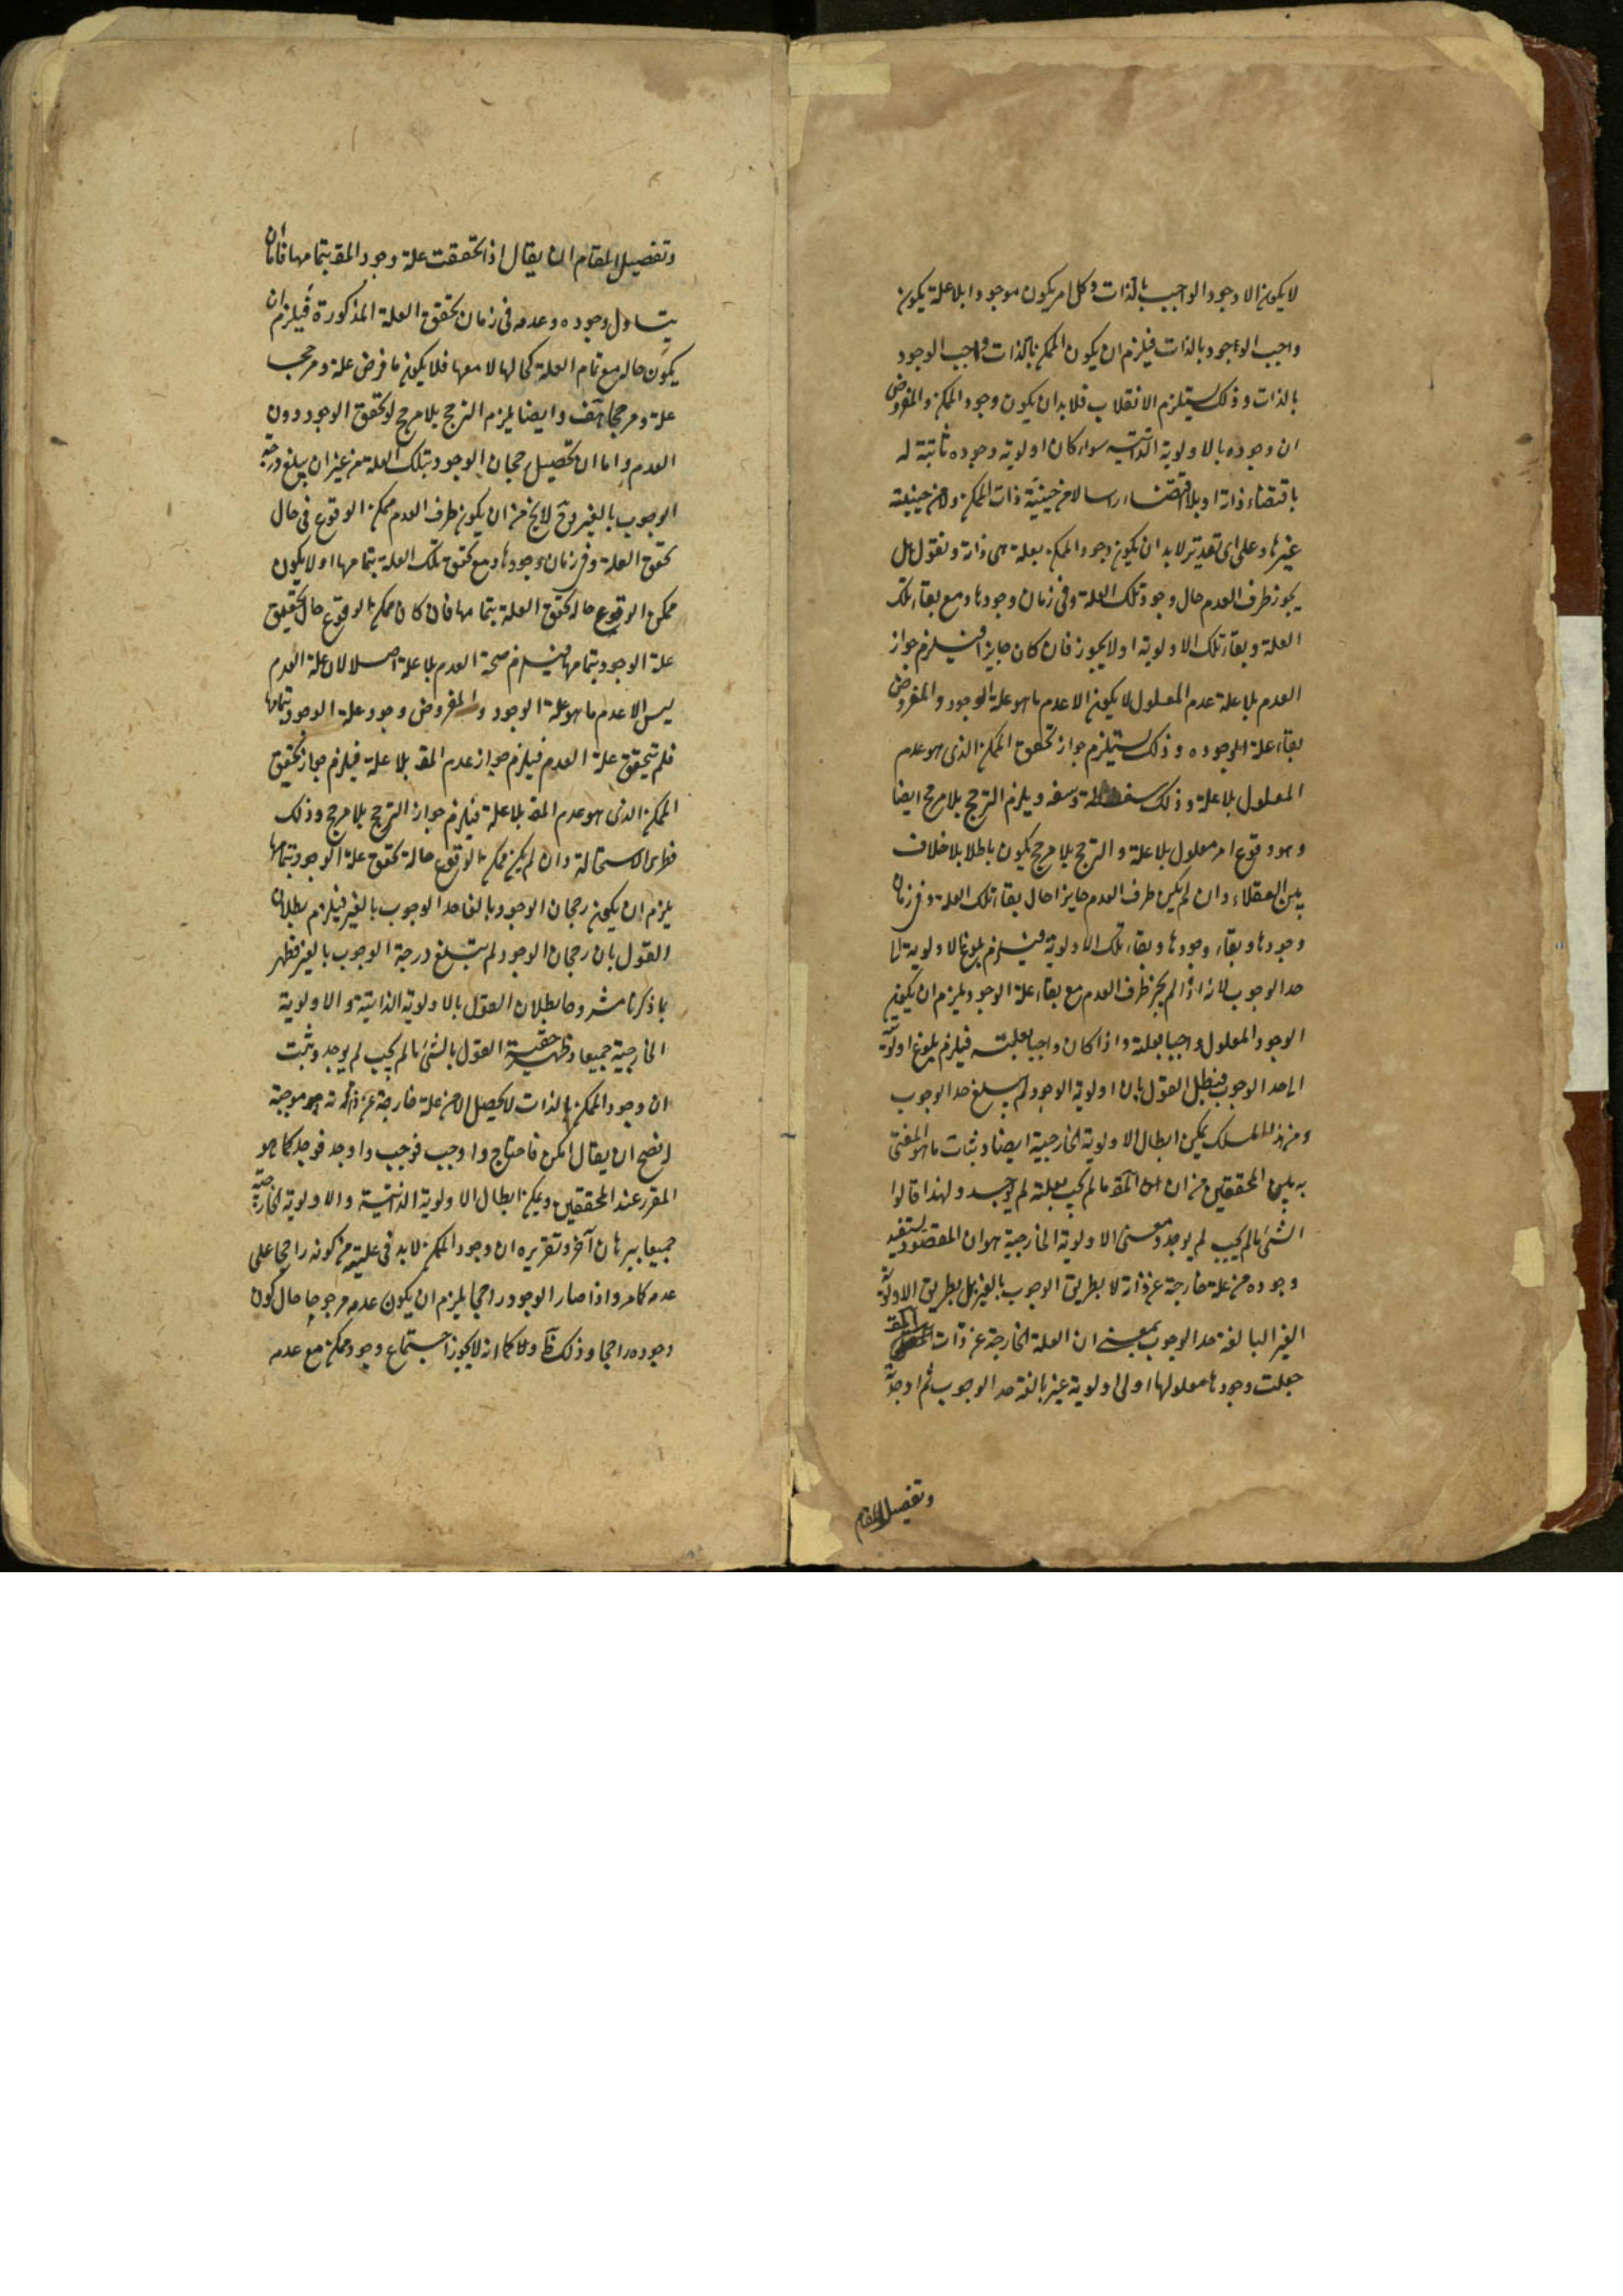 لا يكون الا وجود الواجب بالذات وكل امر يكون موجودا بلا علة يكون
واجب الوجود بالذات فيلزم ان يكون الممكن بالذات واجب الوجود
بالذات وذلك يستلزم الانقلاب فلا بد ان يكون وجود الممكن والمفروض
ان وجوده بالاولوية الذاتية سواء كان اولوية وجوده ثابتة له
باقتضاء ذاته او بلا اقتضاء لا من حيثية ذات الممكن ولا من حيثية
غيرها وعلى اى تقدير لا بد ان يكون وجود الممكن بعلة هى ذاته ونقول هل
يجوز طرف العدم حال وجود تلك العلة وفى زمان وجودها ومع بقاء تلك
العلة وبقاء تلك الاولوية او لا يجوز فان كان جايزا فيلزم جواز
العدم بلا علة عدم المعلول لا يكون الا عدم ما هو علة الوجود والمفروض
بقاء علة الوجوده وذلك يستلزم جواز تحقق الممكن الذى هو عدم
المعلول بلا علة وذلك سفسطة وسفه ويلزم الترجح بلا مرجح ايضا
وهو وقوع امر معلول بلا علة والترجح بلا مرجح يكون باطلا بلا خلاف
بين العقلاء وان لم يكن طرف العدم جايزا حال بقاء تلك العلة وفى زمان
وجودها وبقاء وجودها وبقاء تلك الاولوية فيلزم بلوغ الاولوية الى
حد الوجوب لانه اذا لم يجز طرف العدم مع بقاء علة الوجود يلزم ان يكون
الوجود المعلول واجبا بعلته واذا كان واجبا بعلته فيلزم بلوغ اولوية
الى حد الوجوب فبطل القول بان اولوية الوجود لم يبلغ حد الوجوب
ومن هذا المسلك يمكن ابطال الاولوية الخارجية ايضا وثبات ما هو المفتى
به بين المحققين من ان المقـ ما لم يجب بعلته لم يوجد ولهذا قالوا
الشئ ما لم يجب لم يوجد ومعنى الاولوية الخارجية هو ان المقصود يستفيد
وجوده من علة خارجة عن ذاته لا بطريق الوجوب بالغير بل بطريق الاولوية
الغير البالغة حد الوجوب بمعنى ان العلة الخارجة عن ذات المقـ
جعلت وجودها معلولها اولى اولوية غير بالغة حد الوجوب ثم اوجدته
وتفصيل المقام
وتفصيل المقام ان يقال اذا تحققت علة وجود المقـ بتمامها فاما ان
يتساوى وجوده وعدمه فى زمان تحقق العلة المذكورة فيلزم ان
يكون حاله مع تمام العلة كحالها لا معها فلا يكون ما فرض علة ومرجحا
علة ومرجحا هف وايضا يلزم الترجح بلا مرجح لو تحقق الوجود دون
العدم واما ان تحصيل رجحان الوجود بتلك العلة من غير ان يبلغ درجة
الوجوب بالغير وح لا يخ من ان يكون طرف العدم ممكن الوقوع فى حال
تحقق العلة وفى زمان وجودها ومع تحقق تلك العلة بتمامها او لا يكون
ممكن الوقوع حال تحقق العلة بتمامها فان كان ممكن الوقوع حال تحقيق
علة الوجود بتمامها فيلزم صحة العدم بلا علة اصلا لان علة العدم
ليس الا عدم ما هو علة الوجود والمفروض وجود علة الوجود بتمامها
فلم تتحقق علة العدم فيلزم جواز عدم المقـ بلا علة فيلزم جواز تحقيق
الممكن الذى هو عدم المقـ بلا علة فيلزم جواز الترجح بلا مرجح وذلك
فطرى الاستحالة وان لم يكن ممكن الوقوع حالة تحقق علة الوجود بتمامها
يلزم ان يكون رجحان الوجود بالغا حد الوجوب بالغير فيلزم بطلان
القول بان رجحان الوجود لم يبلغ درجة الوجوب بالغير فظهر
بما ذكرنا مشروحا بطلان القول بالاولوية الذاتية والاولوية
الخارجية جميعا وظهر حقية القول بالشئ ما لم يجب لم يوجد وثبت
ان وجود الممكن بالذات لا يحصل الا من علة خارجة عن ذاته موجبة
فصح ان يقال امكن فاحتاج واوجب فوجب واوجد فوجد كما هو
المقرر عند المحققين ويمكن ابطال الاولوية الذاتية والاولوية الخارجية
جميعا ببرهان آخر وتقريره ان وجود الممكن لا بد فى علية من كونه راجحا على
عدمه كما مر واذا صار الوجود راجحا يلزم ان يكون عدمه مرجوحا حال كون
وجوده راجحا وذلك ظ ولا كما انه لا يجوز اجتماع وجود ممكن مع عدمه